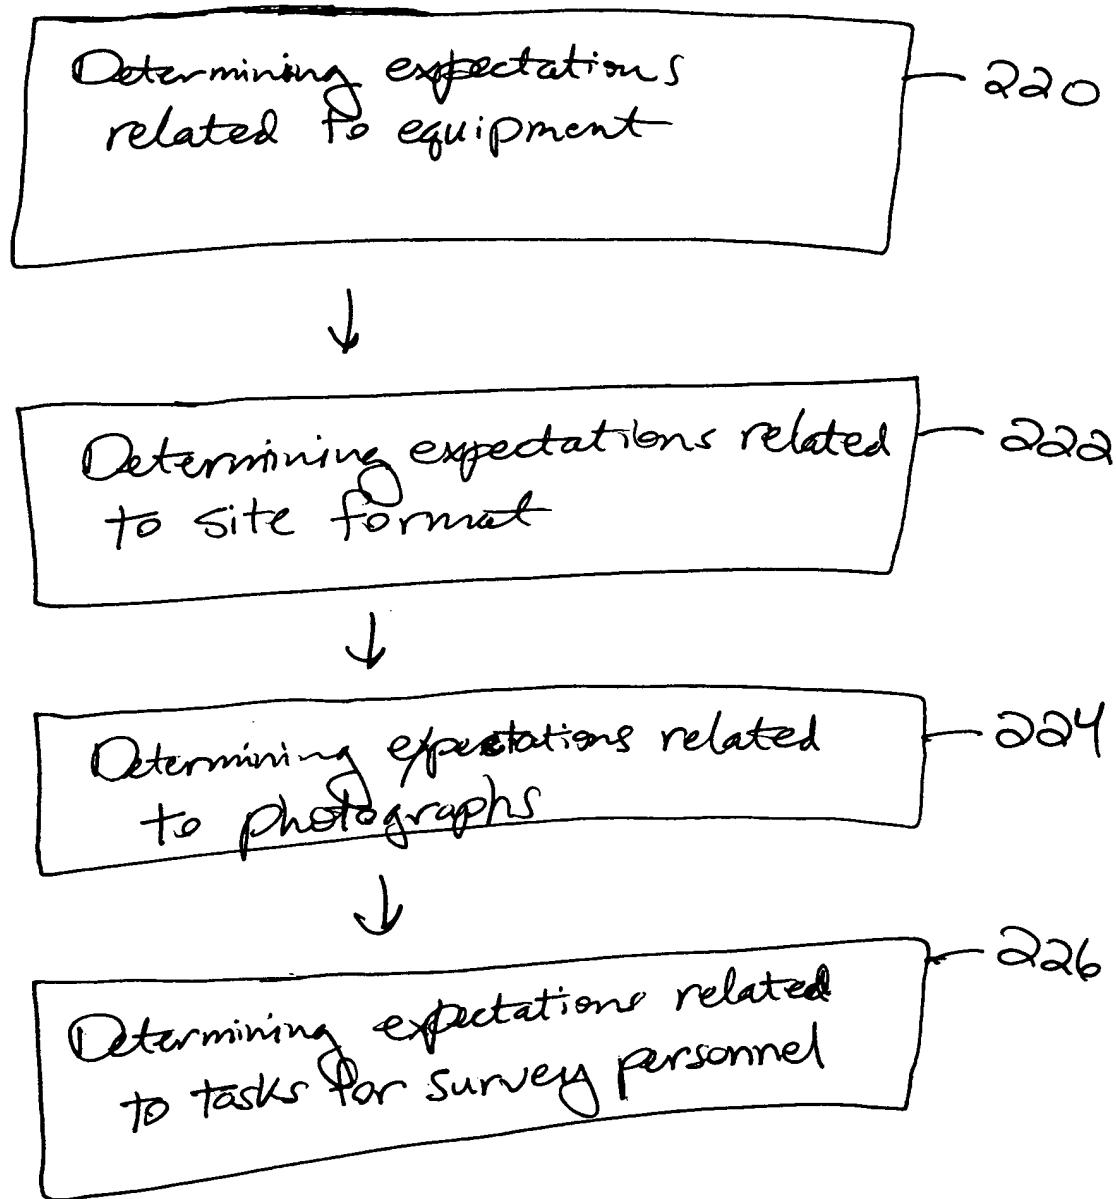 Determining expectations
related to equipment
220
Determining expectations related
to site format
222
Determining expectations related
to photographs
224
Determining expectations related
to tasks for survey personnel
226